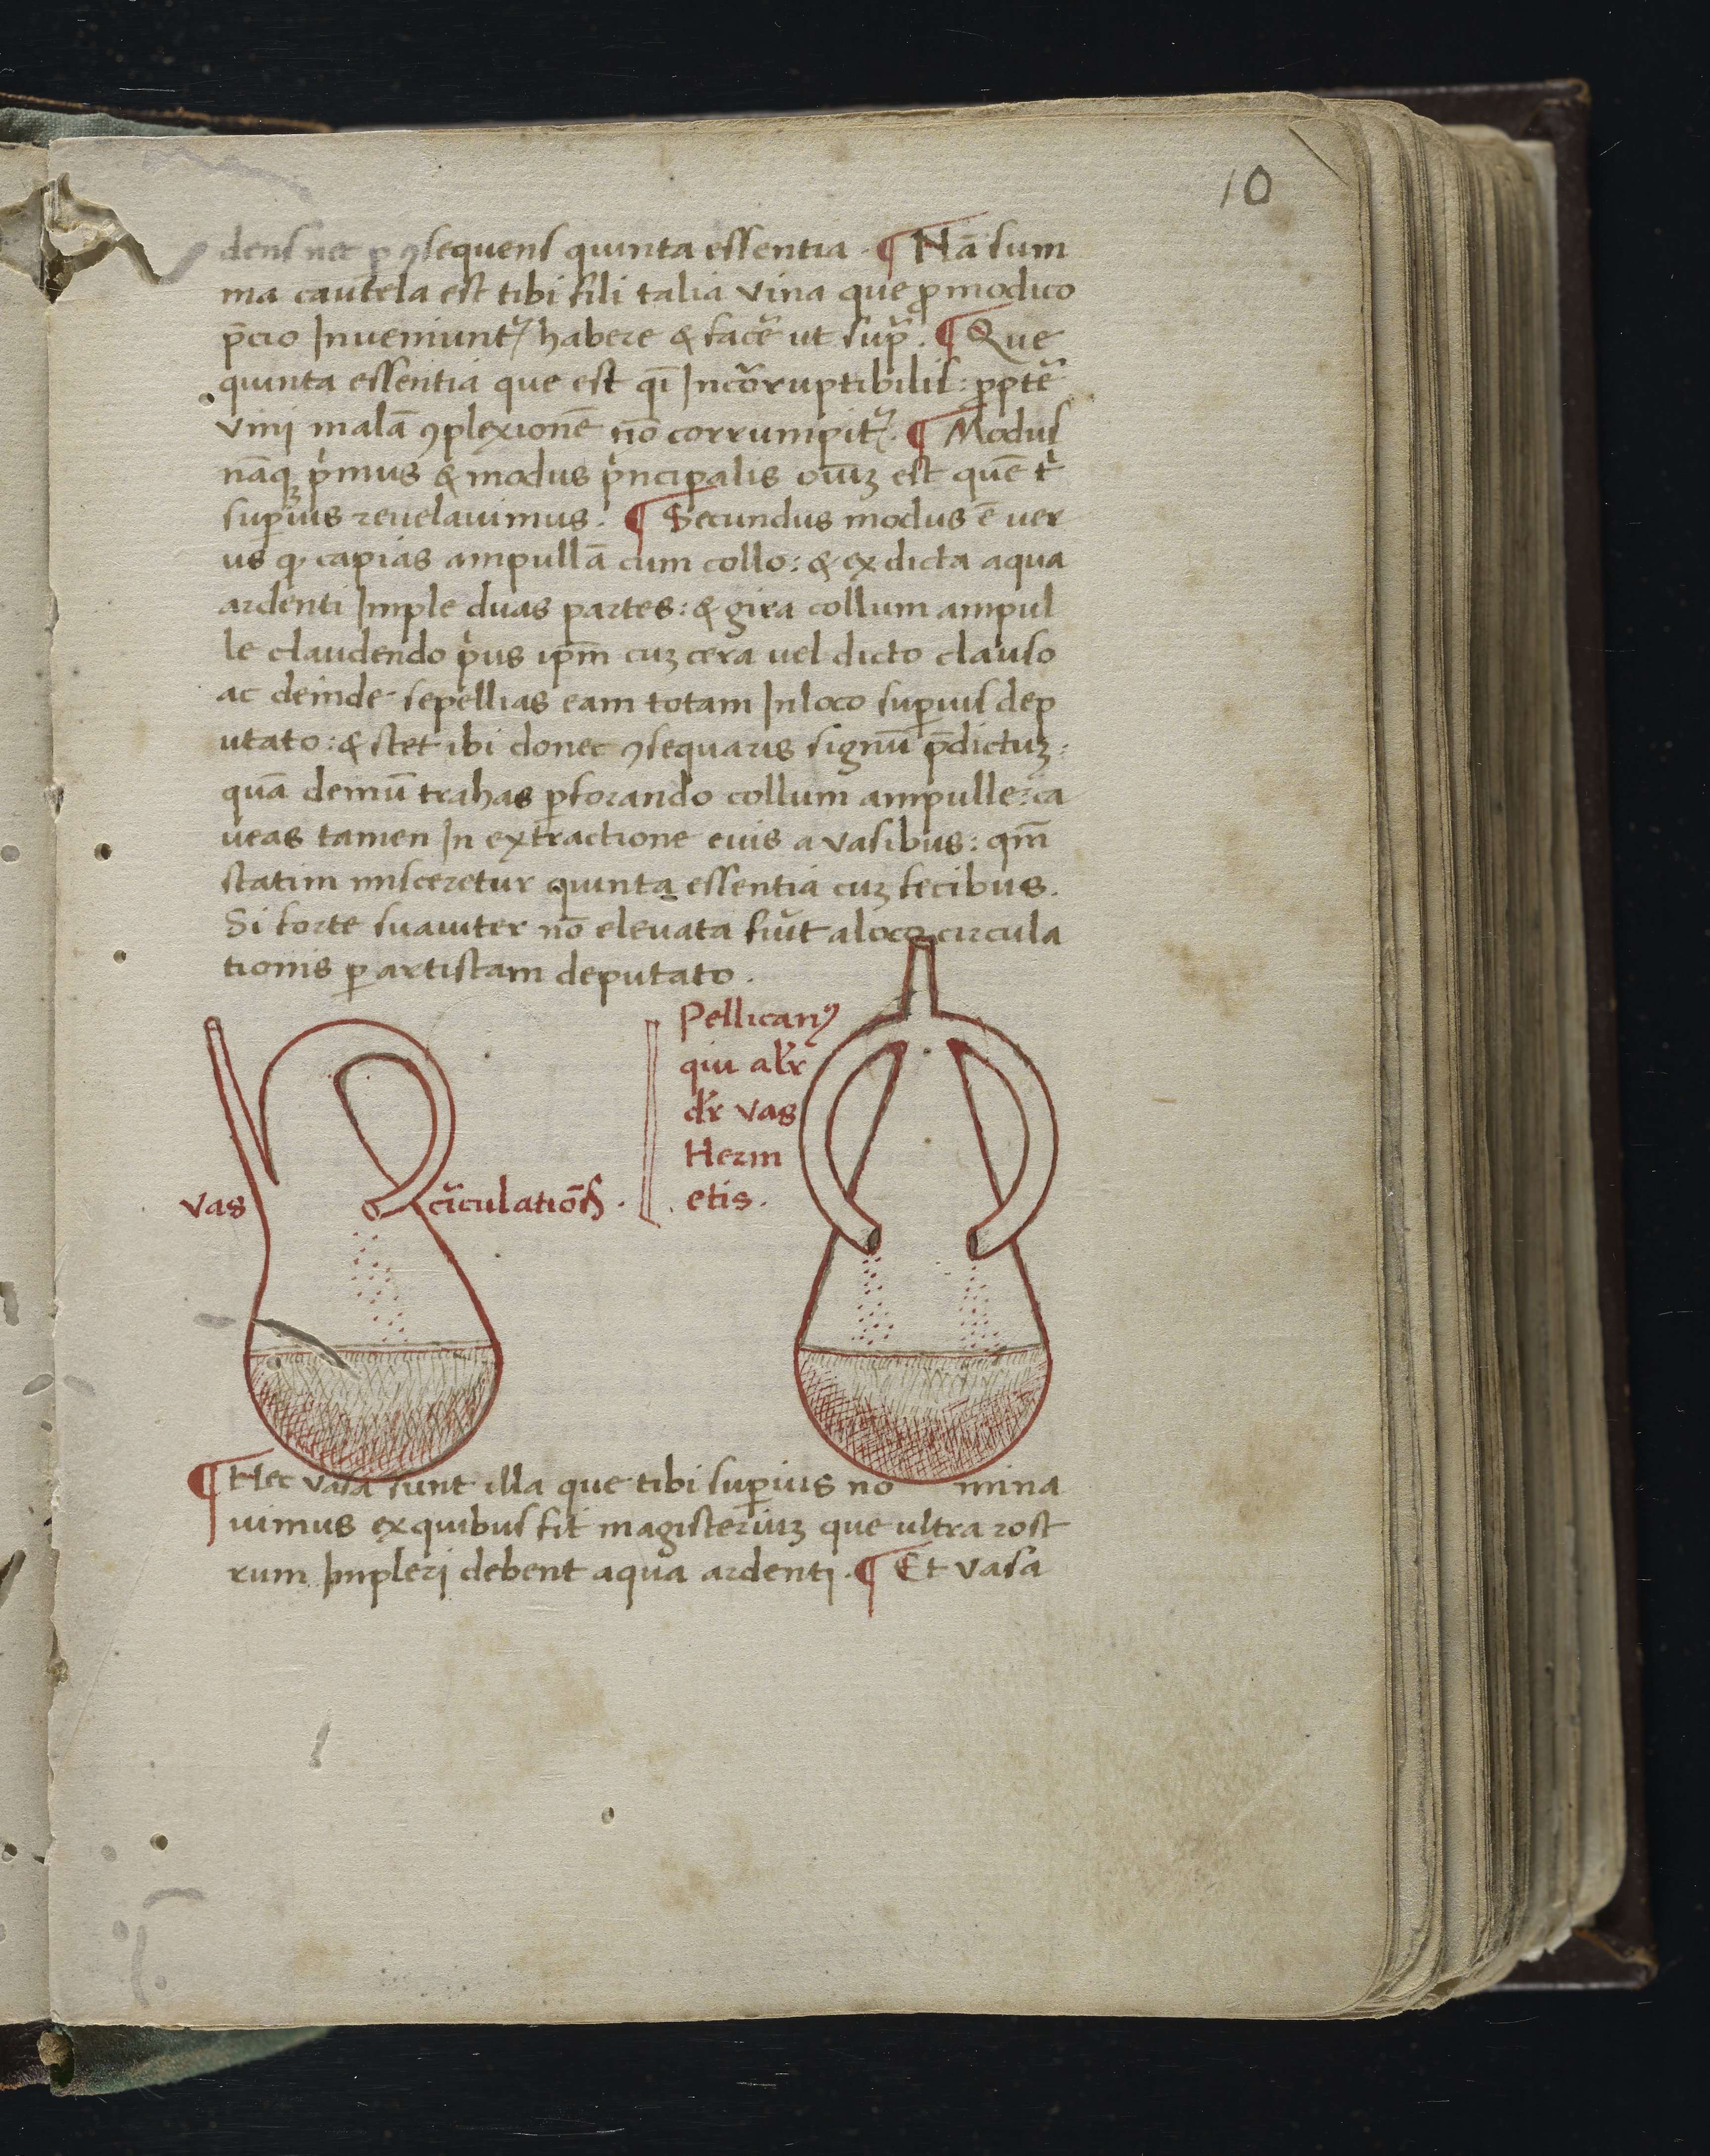 10
dens nec ꝑ ꝯsequens quinta essentia . ¶ Nā sum
ma cautela est tibi fili talia vina que ꝓ modico
p̄cio Inueniunt᷑ habere & facē ut sup᷑ . ¶ Que
quinta essentia que est q̄i Incōrruptibilis : ꝓptē
vini malā ꝯplexionē nō corrumpit᷑ . ¶ Modus
nāqꝫ pͥmus & modus pͥncipalis oīuꝫ est quē tͥ
suꝑius reuelauimus . ¶ Secundus modus ē uer
us ꝙ capias ampullā cum collo : & ex dicta aqua
ardenti Imple duas partes : & gira collum ampul
le claudendo pͥus ip̄m cuꝫ cera uel dicto clauso
ac deinde sepellias eam totam In loco suꝑius dep
utato : & stet ibi donec ꝯsequaris signū p̄dictuꝫ :
quā demū trahas ꝑforando collum ampulle : ca
ueas tamen In extractione euis a vasibus : qm̄
statim misceretur quinta essentia cuꝫ fecibus .
Si forte suauiter nō eleuata fiūt a loco circula
tionis ꝑ artistam deputato .
vas
cīculatiōis .
Pellicanꝰ
qui al'r
d'r vas
Herm
etis .
¶ Hec vasa sunt illa que tibi suꝑius no mina
uimus ex quibus fit magisteriuꝫ que ultra rost
rum Impleri debent aqua ardenti . ¶ Et vasa